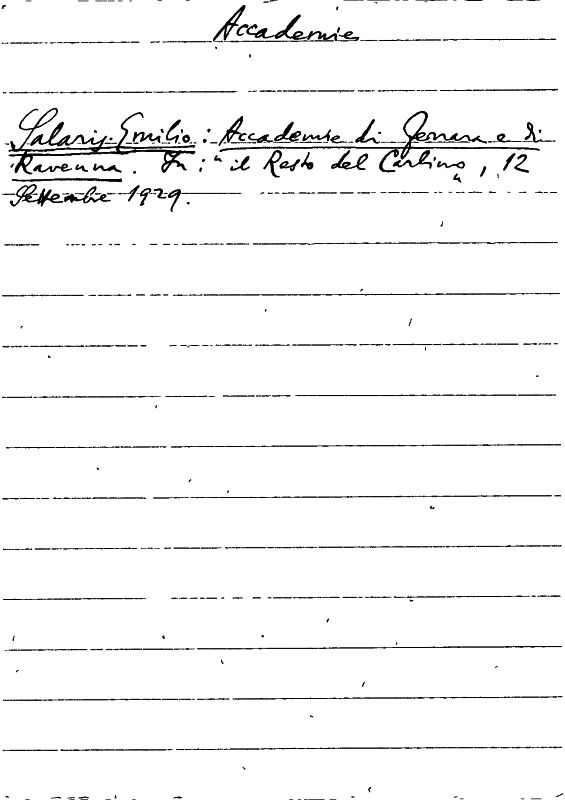 Accademie
Salaris Emilio: Accademie di Ferrara e di
Ravenna. In: "il Resto del Carlino", 12
Settembre 1929.